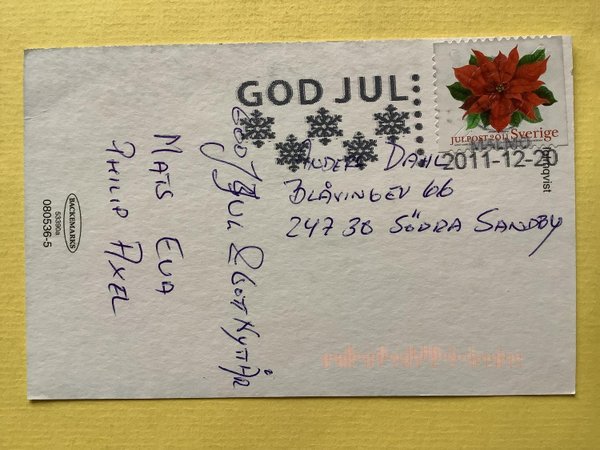 GOD JUL
JULPOST 2011 Sverige
MALMÖ
2011-12-20
qvist
ANDERS DAHL
BLÅVINGEV 66
247 38 SÖDRA SANDBY
GOD JUL & GOTT NYTT ÅR
MATS EVA
PHILIP AXEL
BACKEMARKS
53390a
080536-5